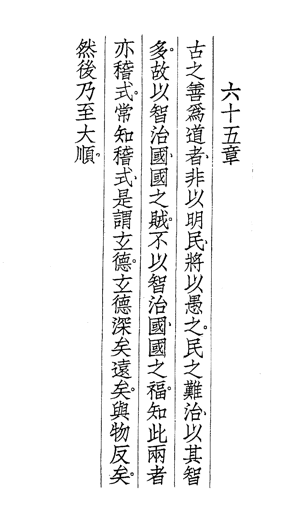 六十五章
古之善爲道者、非以明民、將以愚之。民之難治、以其智
多。故以智治國、國之賊。不以智治國、國之福。知此兩者
亦稽式。常知稽式、是謂玄德。玄德深矣遠矣。與物反矣。
然後乃至大順。